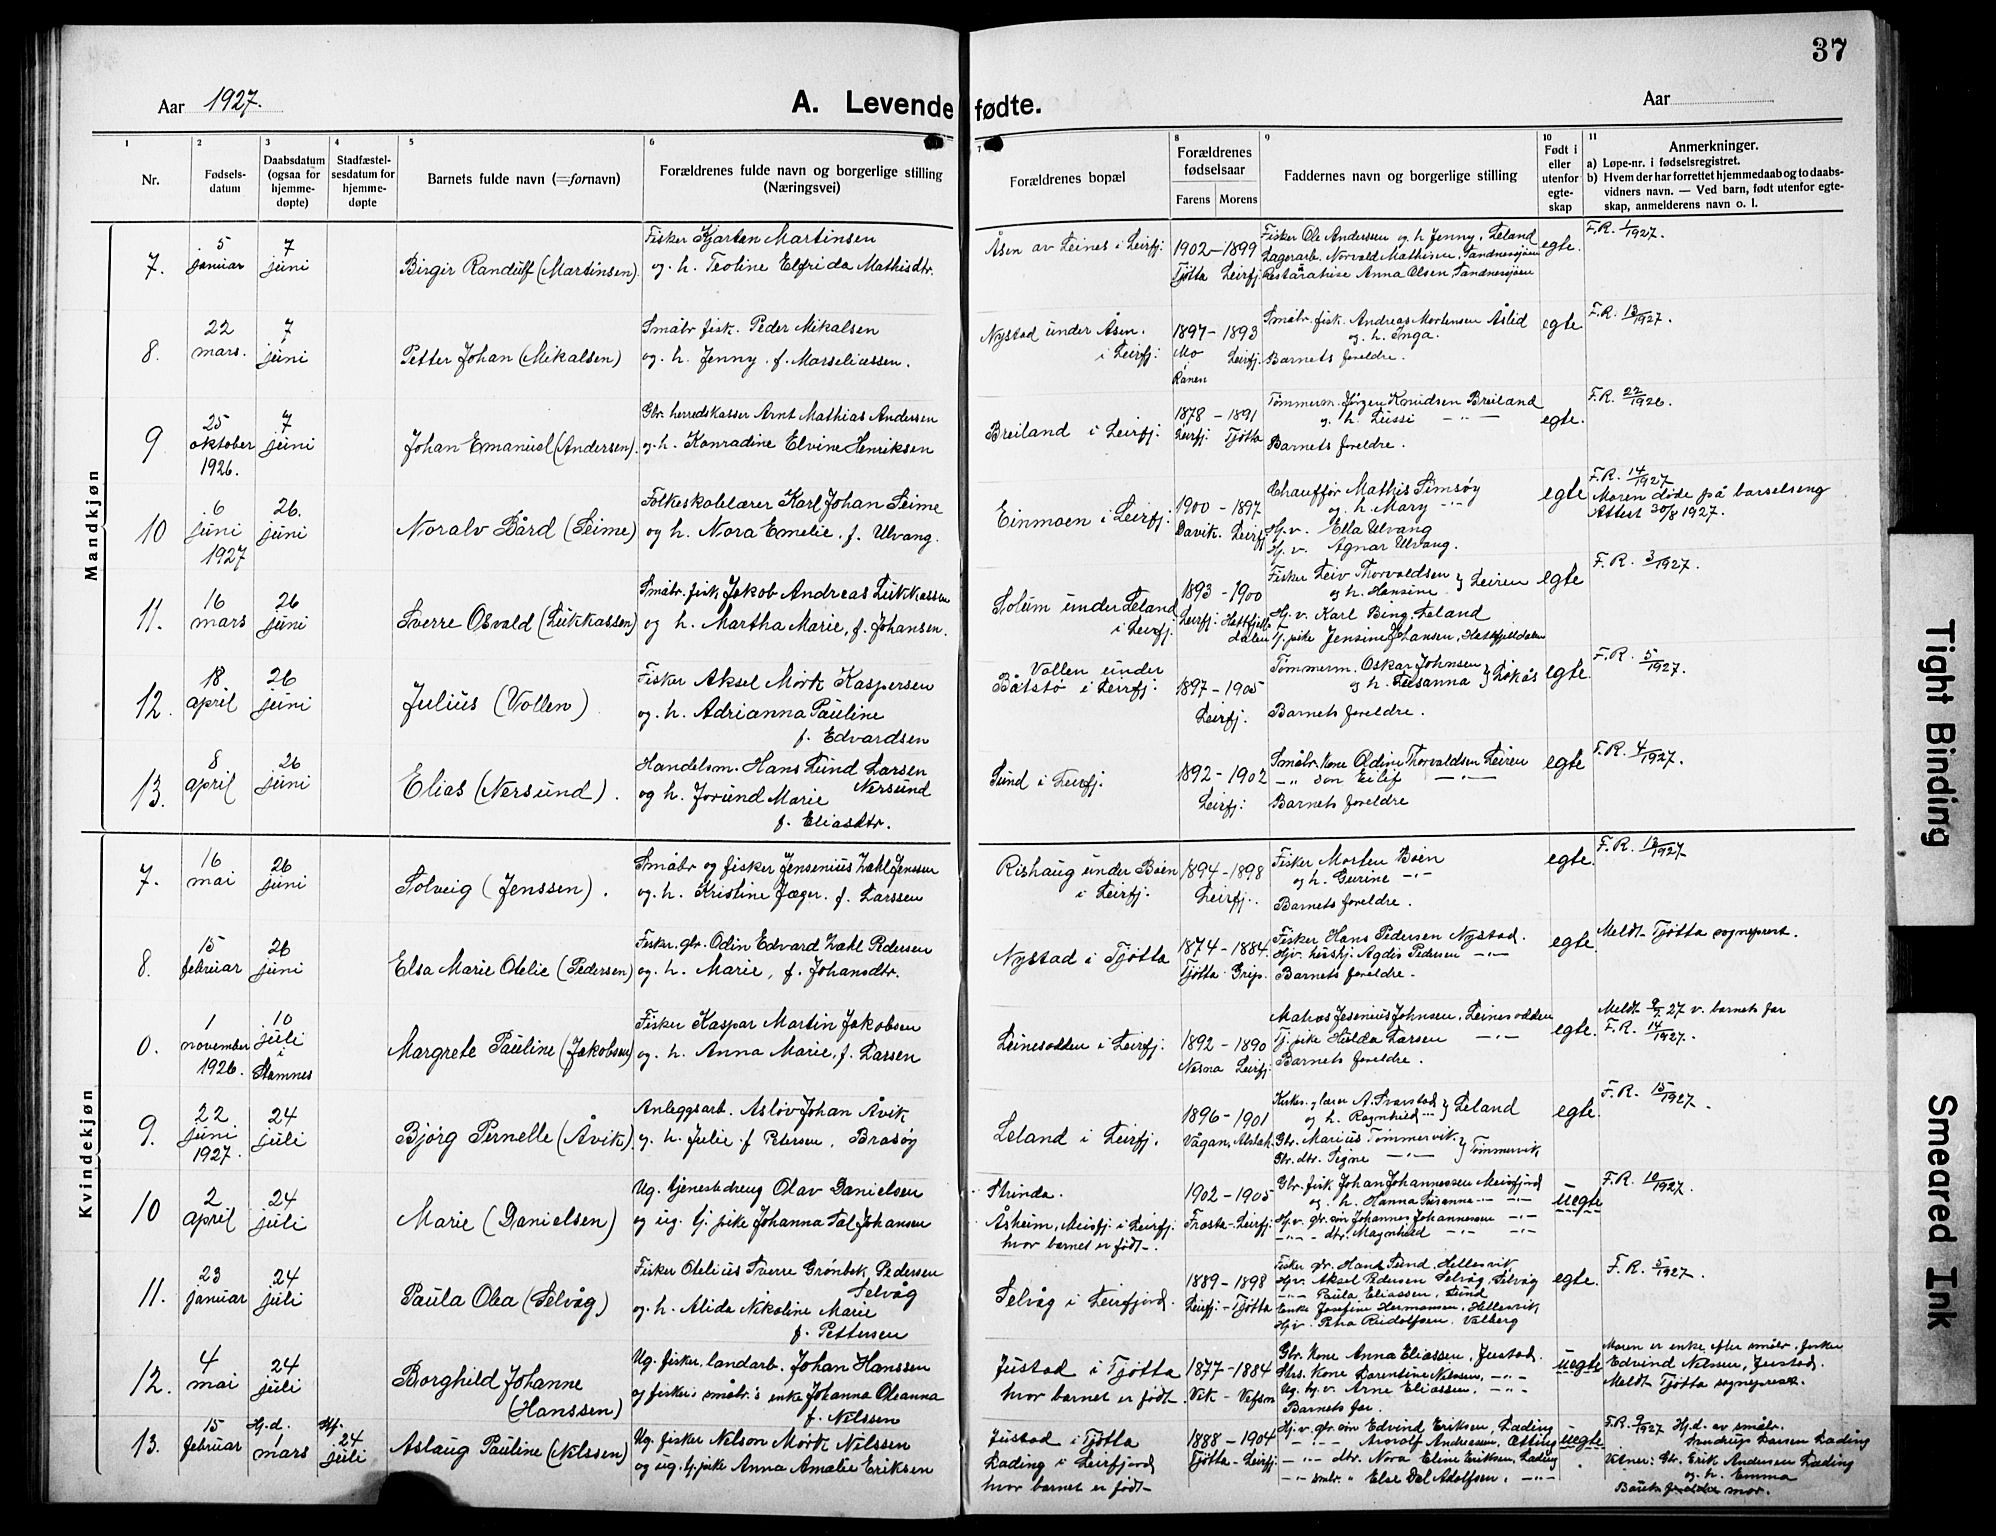 37
Aar 1927.
A. Levende fødte.
Aar
1 Nr.
2 Fødsels-datum
3 Daabsdatum (ogsaa for hjemme-døpte)
4 Stadfæstel-sesdatum for hjemme-døpte
5 Barnets fulde navn (=fornavn)
6 Forældrenes fulde navn og borgerlige stilling (Næringsvei)
7 Forældrenes bopæl
8 Forældrenes fødselsaar
Farens Morens
9 Faddernes navn og borgerlige stilling
10 Født i eller utenfor egte-skap
11 Anmerkninger.
a) Løpe-nr. i fødselsregistret.
b) Hvem der har forrettet hjemmedaab og to daabs-vidners navn. — Ved barn, født utenfor egte-skap, anmelderens navn o. l.
Mandkjøn
7. 5 januar 7 juni Birgir Randulf (Martinsen)
Fisker Kjartan Martinsen
og h. Teoline Elfrida Mathisdtr.
Åsen av Leines i Leirfj.
1902-1899
Tjøtta Leirfj.
Fisker Ole Andersen og h. Jenny, Leland
Lagerarb. Norvald Mathisen, Sandnessjøen
Anna Olsen, Sandnessjøen
egte.
F.R. 1/1927.
8. 22 mars. 7 juni Petter Johan (Mikalsen)
Småbr. fisk. Peder Mikalsen
og h. Jenny f. Marseliussen.
Nystad under Åsen.
i Leirfj:
1897-1893
Mo Leirfj.
Ranen
Småbr. fisk. Andreas Mortensen Åslid
og h. Inga.
Barnets foreldre.
egte
F.R. 13/1927.
9 25 oktober 1926. 7 juni Johan Emanuel (Andersen).
Gbr. herredskasser Arnt Mathias Andersen
og h. Konradine Elvine Henriksen
Breiland i Leirfj.
1878 - 1891
Leirfj. Tjøtta
Tømmerm. Jørgen Knudsen Breiland
og h. Lussi -"-
Barnets foreldre.
egte.
F.R. 22/1926.
10 6 juni 1927 26. juni Noralv Bård (Seime)
Folkeskolelærer Karl Johan Seime
og h. Nora Emelie, f. Ulvang.
Einmoen i Leirfj.
1900 - 1897
Davik. Leirfj.
Chauffør Mathis Simsøy
og h. Mary -"-
Hj. v. Ella Ulvang
Hj. v. Agnar Ulvang.
egte
F.R. 14/1927
Moren døde på barselseng
Attest 30/8 1927.
11. 16 mars 26 juni Sverre Osvald (Lukkassen)
Småbr. fisk Jakob Andreas Lukkassen
og h. Martha Marie, f. Johansen.
Solum under Leland
i Leirfj.
1893 - 1900
Leirfj: Hattfjelldalen
Fisker Leiv Thorvaldsen
og h. Hansine } Leiren
Hj. v. Karl Bing. Leland
Tj. pike Jensine Johansen, Hattfjelldalen
egte
F.R. 3/1927.
12. 18. april 26 juni Julius (Vollen)
Fisker Aksel Mørk Kaspersen
og h. Adrianna Pauline
f. Edvardsen
Vollen under
Båtstø i Leirfj:
1897-1905
Leirfj.
Tømmerm. Oskar Johnsen
og h. Susanna } Lokås
Barnets foreldre.
egte
F.R. 5/1927.
13. 8 april 26 juni Elias (Nersund).
Handelsm. Hans Lund Larsen
Nersund
og h. Jorund Marie
f. Eliasdtr.
Sund i Leirfj.
1892-1902
Leirfj:
Småbr. kone Odine Thorvaldsen Leiren
-"- søn Eilif -"-
Barnets foreldre
egte
F.R. 4/1927.
Kvindekjøn
7. 16 mai 26 juni Solveig (Jenssen).
Småbr og fisker Jensenius Zahl Jenssen
og h. Kristine Jæger. f. Larssen
Rishaug under Boen
i Leirfj.
1894-1898
Leirfj.
Fisker Morten Boen
og h. Gurine -"-
Barnets foreldre.
egte.
F.R. 12/1927
8. 15 februar 26 juni Elsa Marie Otelie (Pedersen)
Fisker, gbr. Odin Edvard Zahl Pedersen
og h. Marie, f. Johansdtr.
Nystad i Tjøtta
1874-1884.
Tjøtta Grip.
Fisker Hans Pedersen Nystad.
Hjv. hushj. Agdis Pedersen -"-
Barnets foreldre.
egte.
Meldt Tjøtta sogneprest.
0. 1 november 1926. 10 juli i Stamnes Margrete Pauline (Jakobsen)
Fisker Kaspar Martin Jakobsen
og h. Anna Marie, f. Larsen
Leinesodden i Leirfj.
1892-1890
Nesna Leirfj.
Matros Jesenius Johnsen, Leinesodden
Tj. pike Hulda Larsen -"-
Barnets foreldre.
egte.
Meldt 9/7 27 v. barnets far
F.R. 14/1927.
9. 22 juni 1927. 24 juli Bjørg Pernelle (Åvik).
Anleggsarb. Asløv Johan Åvik
og h. Julie f Petersen, Brasøy
Leland i Leirfj.
1896-1901
Vågan, Alstah.
Kirkes. g lærer A. Svarstad
og h. Ragnhild -"- } Leland
Gbr. Marius Tømmervik.
Gbr. dtr. Signe -"- } Tømmervik
egte
F.R. 15/1927.
10 2 april 24 juli Marie (Danielsen)
Ug. tjenestedreng Olav Danielsen
og ug. tj. pike Johanna Dal Johansen
Strinda.
Åsheim, Meisfj. i Leirfj.
hvor barnet er født.
1902-1905
Frosta-Leirfj.
Gbr. fisk Johan Johannessen Meisfjord
og h. Hanna Susanne -"- -"-
Hj. v. gbr. søn Johannes Johannessen -"-
-"- - dtr. Magnhild -"- -"-
uegte.
F.R. 10/1927.
11. 23 januar 24 juli Paula Olea (Selvåg)
Fisker Otelius Sverre Grønbek Pedersen
Selvåg
og h. Alida Nikoline Marie
f. Pettersen
Selvåg i Leirfjord.
1889-1898
Leirfj.-Tjøtta
Fisker gr. Hans Sund. Hellesvik
Hjv. Aksel Pedersen Selvåg, Selvåg
-"- Paula Eliassen, Sund
Enke Josefine Hermansen, Hellesvik
Hjv. Petra Rudolfsen, Velberg
egte.
F.R. 5/1927.
12. 4 mai 24 juli Borghild Johanne
(Hanssen)
Ug. fisker, landarb. Johan Hanssen
og fiskers småbr.'s enke Johanna Oleanna
f. Nilssen
Justad i Tjøtta
hvor barnet er født
1877-1884
Vik - Vefsn
Gbr. kone Anna Eliassen, Justad.
Gbrs. kone Darentine Nilssen, -"-
Ug. tj. v. Arne Eliassen. -"-
Barnets far.
uegte
Moren er enke efter småbr. fisker
Edvind Nilssen, Justad.
Meldt Tjøtta sogneprest.
13. 15 februar Hj.d. 1 mars Stf. 24 juli Aslaug Pauline (Nilssen)
Ug. fisker Nelson Mørk Nilssen
og ug. tj. pike Anna Amalie Eriksen
Justad i Tjøtta
Lading i Leirfjord
hvor barnet er født
1888-1904
Tjøtta-Leirfj:
Hj. v. gbr. søn Edvind Eriksen, Lading
-"- -"- Arnolf Andreasen, Otting
-"- dtr. Nora Eline Eriksen, Lading
-"- småbr. " Else Dal Adolfsen, -"-
uegte
F.R. 7/1927 Hj.d. av småbr.
Sundrup Larsen Lading
Vitner: Gbr. Erik Andersen Lading
og h. Emma
Barnets foreldre mor.
Tight Binding
Smeared Ink